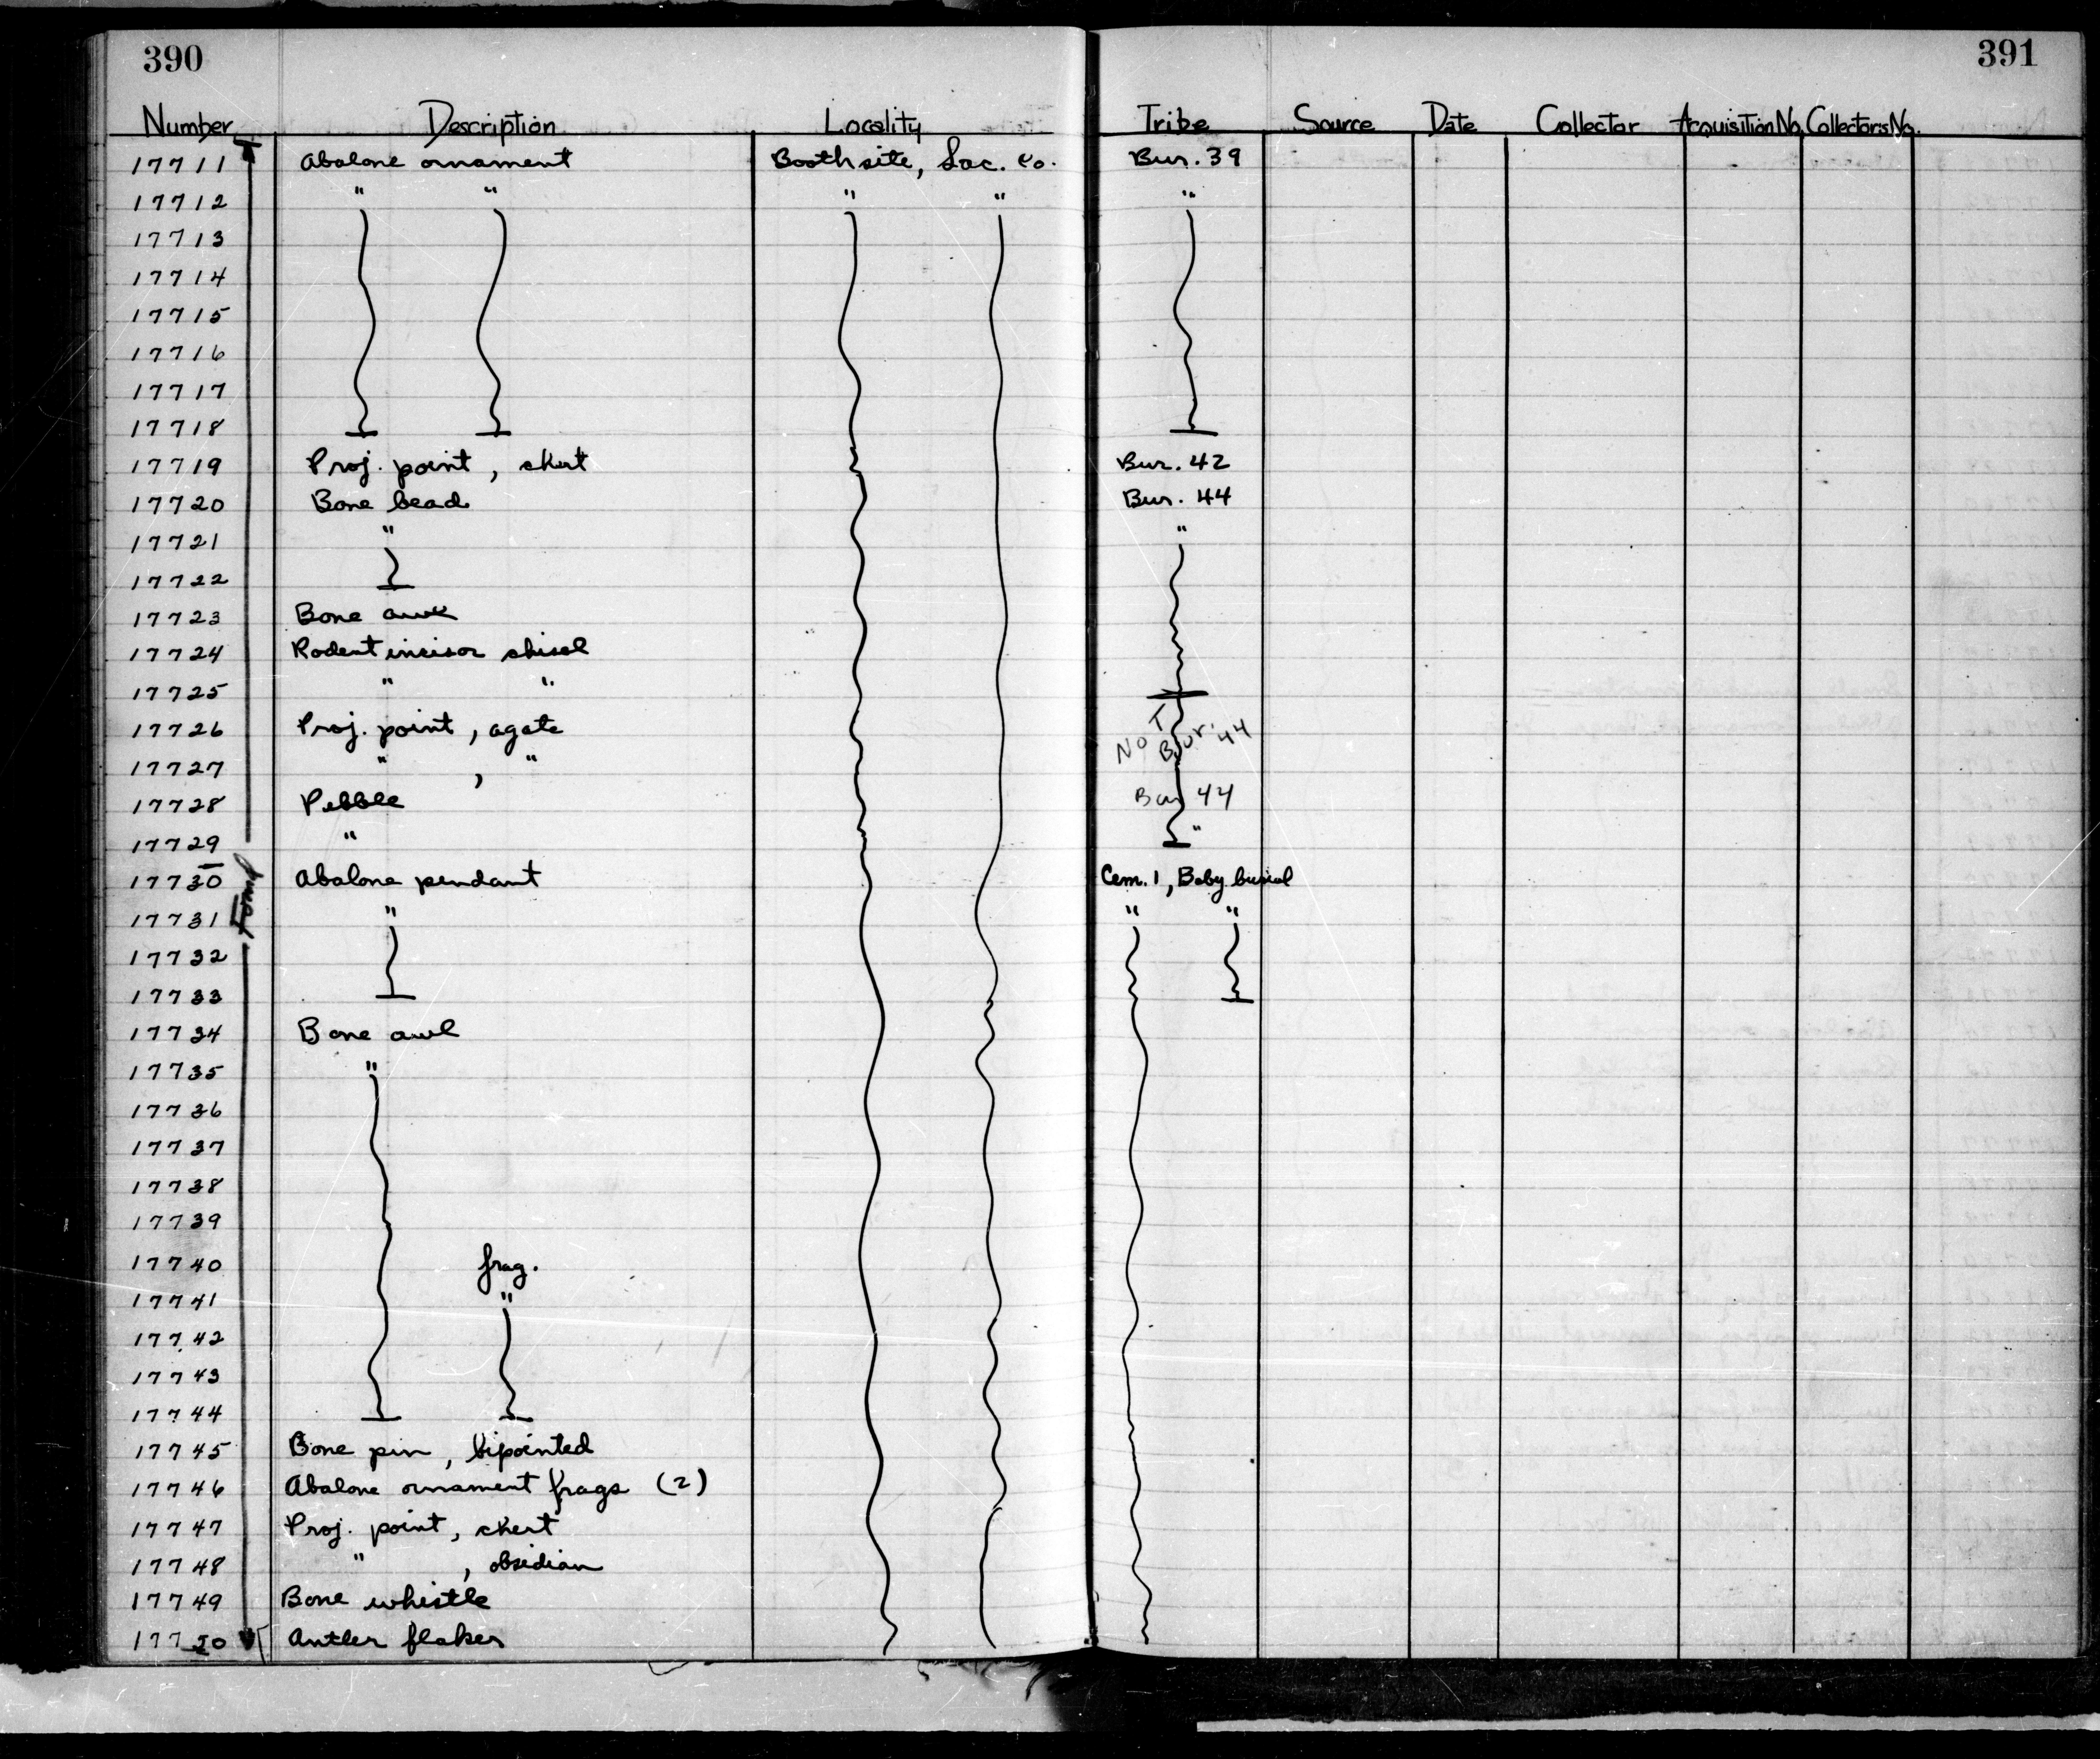 390
391
Number Description Locality Tribe Source Date Collector Acquisition No. Collector's No.
17711 Abalone ornament Booth site, Sac. Co. Bur. 39
17712 " " " " "
17713
17714
17715
17716
17717
17718
17719 Proj. point, chert Bur. 42
17720 Bone bead Bur. 44
17721 " "
17722
17723 Bone awl
17724 Rodent incisor chisel
17725 " "
17726 Proj. point, agate NOT Bur. 44
17727 " , "
17728 Pebble Bur 44
17729 " "
17730 Abalone pendant Cem. 1, Baby burial
17731 " " "
17732
17733
17734 Bone awl
17735 "
17736
17737
17738
17739
17740 frag.
17741 "
17742
17743
17744
17745 Bone pin, bipointed
17746 Abalone ornament frags (2)
17747 Proj. point, chert
17748 " , obsidian
17749 Bone whistle
17750 Antler flaker